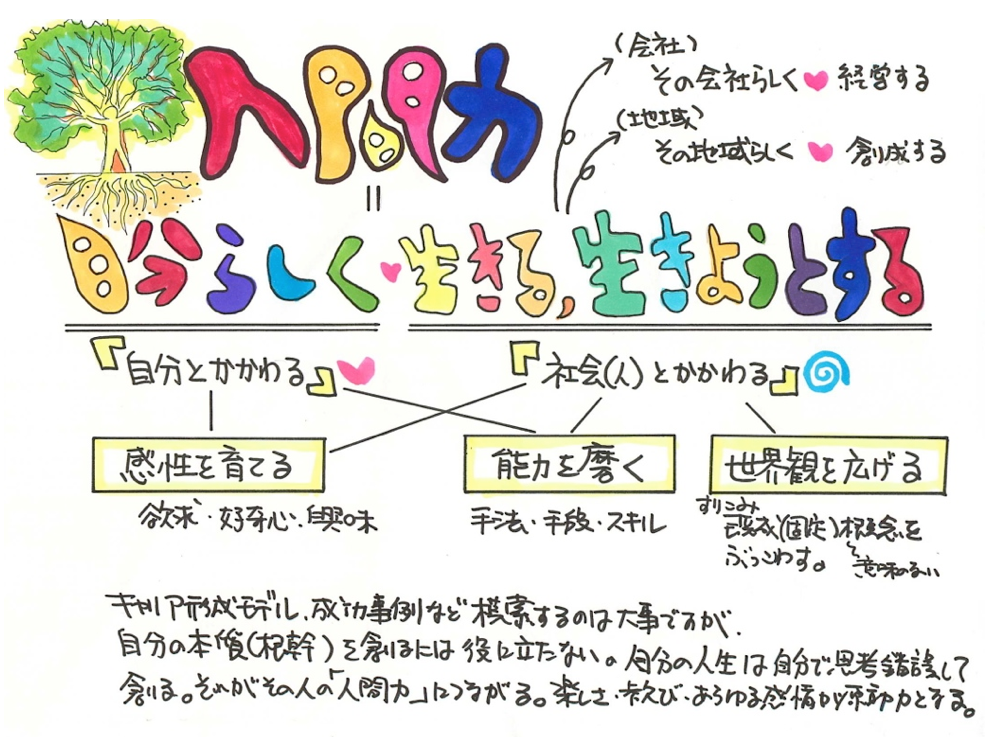 人間力
(会社)
その会社らしく 経営する
(地域)
その地域らしく 創成する
=
自分らしく・生きる,生きようとする
『自分とかかわる』
『社会(人)とかかわる』
感性を育てる
能力を磨く
世界観を広げる
欲求・好奇心・興味
手法・手段・スキル
すりこみ
既成(固定)概念を
ぶっこわす。
意味のない
キャリア形成モデル、成功事例など模索するのは大事ですが、
自分の本質(根幹)を創るには役に立たない。自分の人生は自分で思考錯誤して
創る。それがその人の「人間力」につながる。楽しさ・歓び・あらゆる感情が原動力となる。